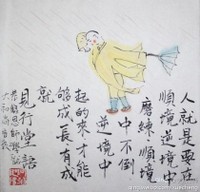 人就是要在
順境逆境中
磨練順境
中不倒
逆境中
起的來才能
夠成長有成
就
見行堂語